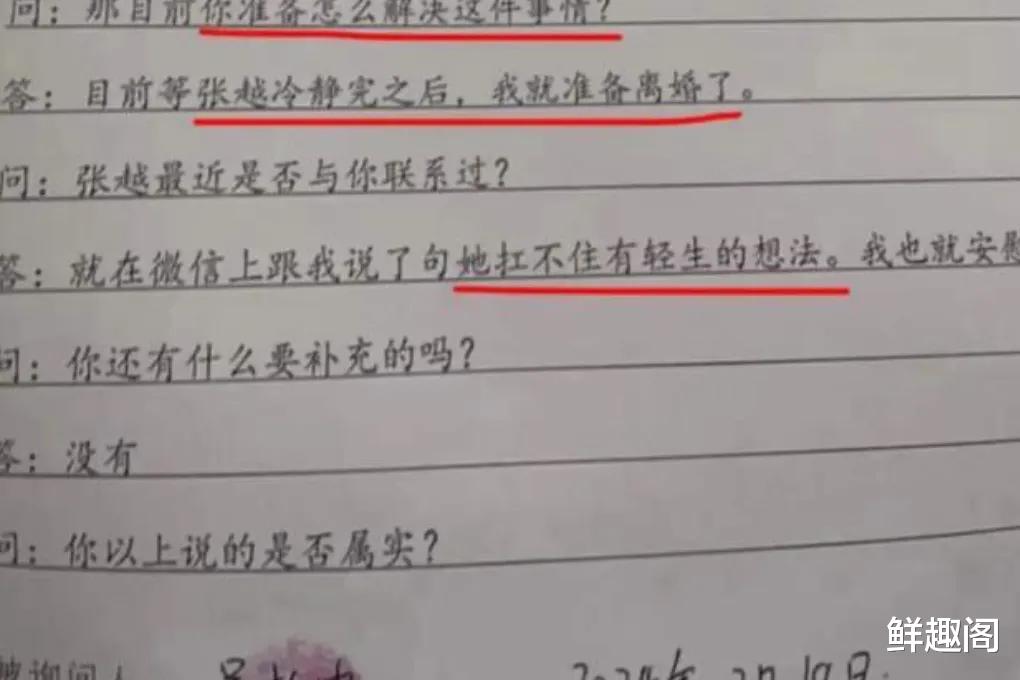 问：那目前你准备怎么解决这件事情？
答：目前等张越冷静完之后，我就准备离婚了。
问：张越最近是否与你联系过？
答：就在微信上跟我说了句她扛不住有轻生的想法。我也就安慰
问：你还有什么要补充的吗？
答：没有
问：你以上说的是否属实？
被询问人
鲜趣阁